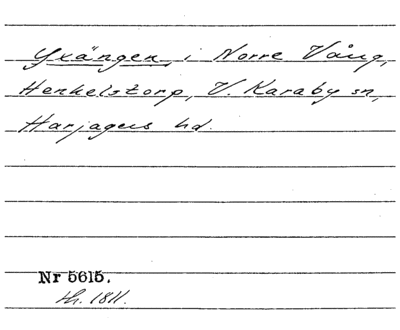 Yxängen, i Norre Vång,
Henkelstorp, V. Karaby sn,
Harjagers hd.
Nr 5615.
th. 1811.